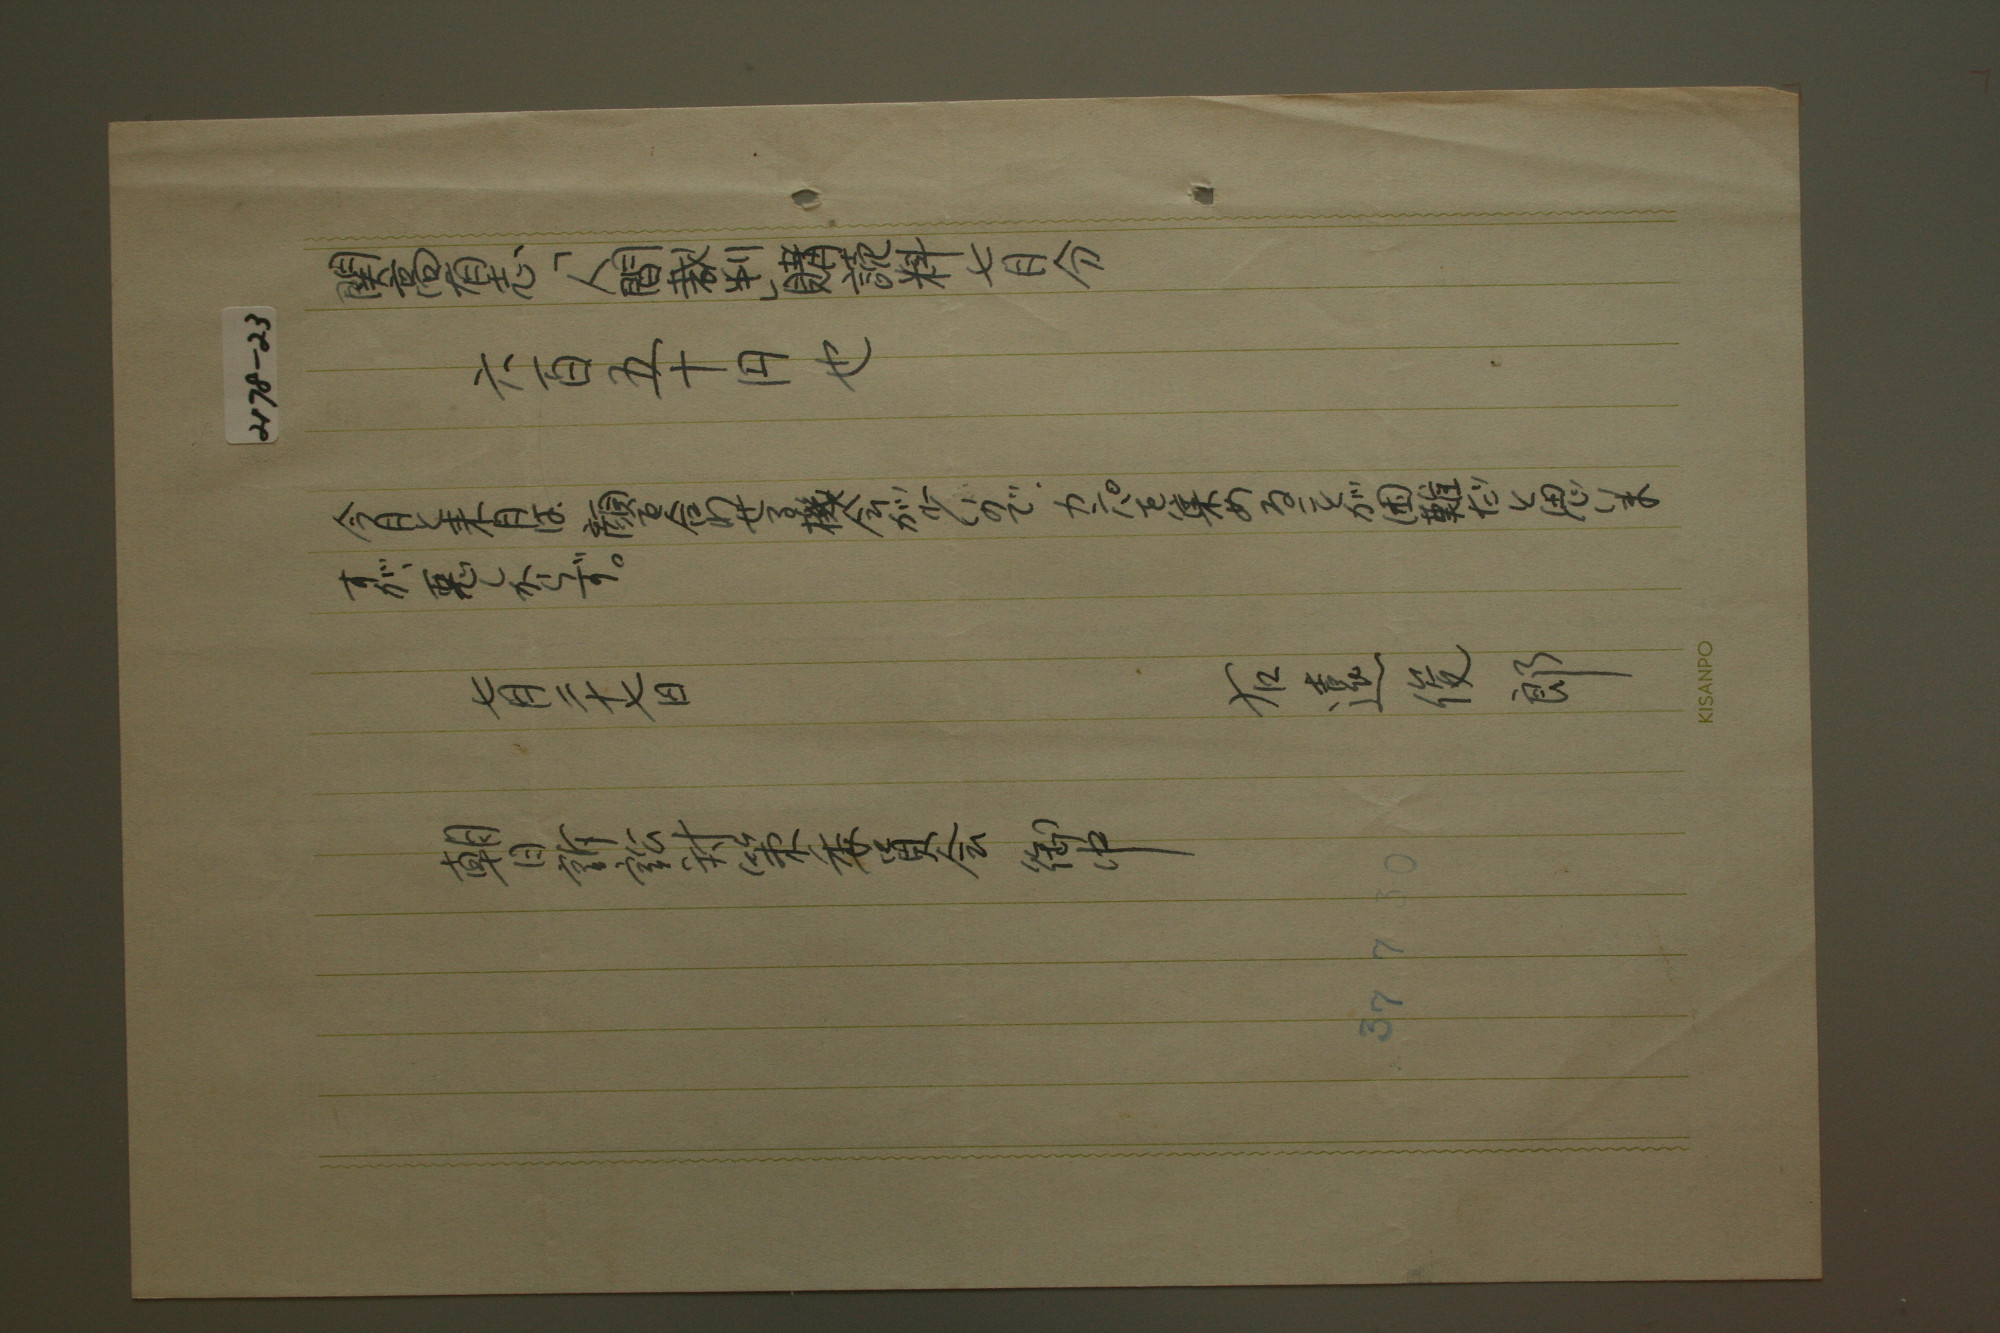 関高有志「人間裁判」購読料七月分
六百五十円也
今月と来月は、顔を合わせる機会が少いので、カンパを集めることが困難だと思いま
すが、悪しからず。
七月二十七日
右遠俊郎
朝日訴訟対策委員会 御中
37 7 30
2178-23
KISANPO